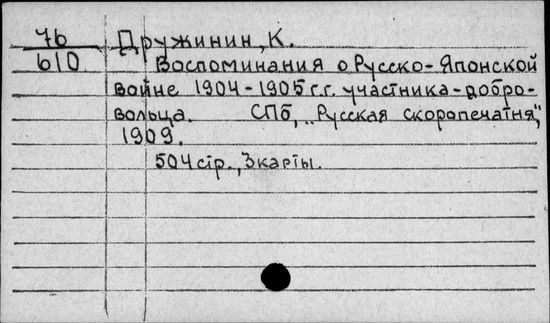 76 Дружинин, К.
610 Воспоминания о Русско-Японской
войне 1904-1905 г.г. участника-добро-
вольца. СПб, „Русская скоропечатня",
1909.
504 стр., 3 карты.